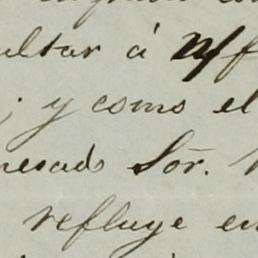 ultar á
; y como el
nesado Sor.
refluye en